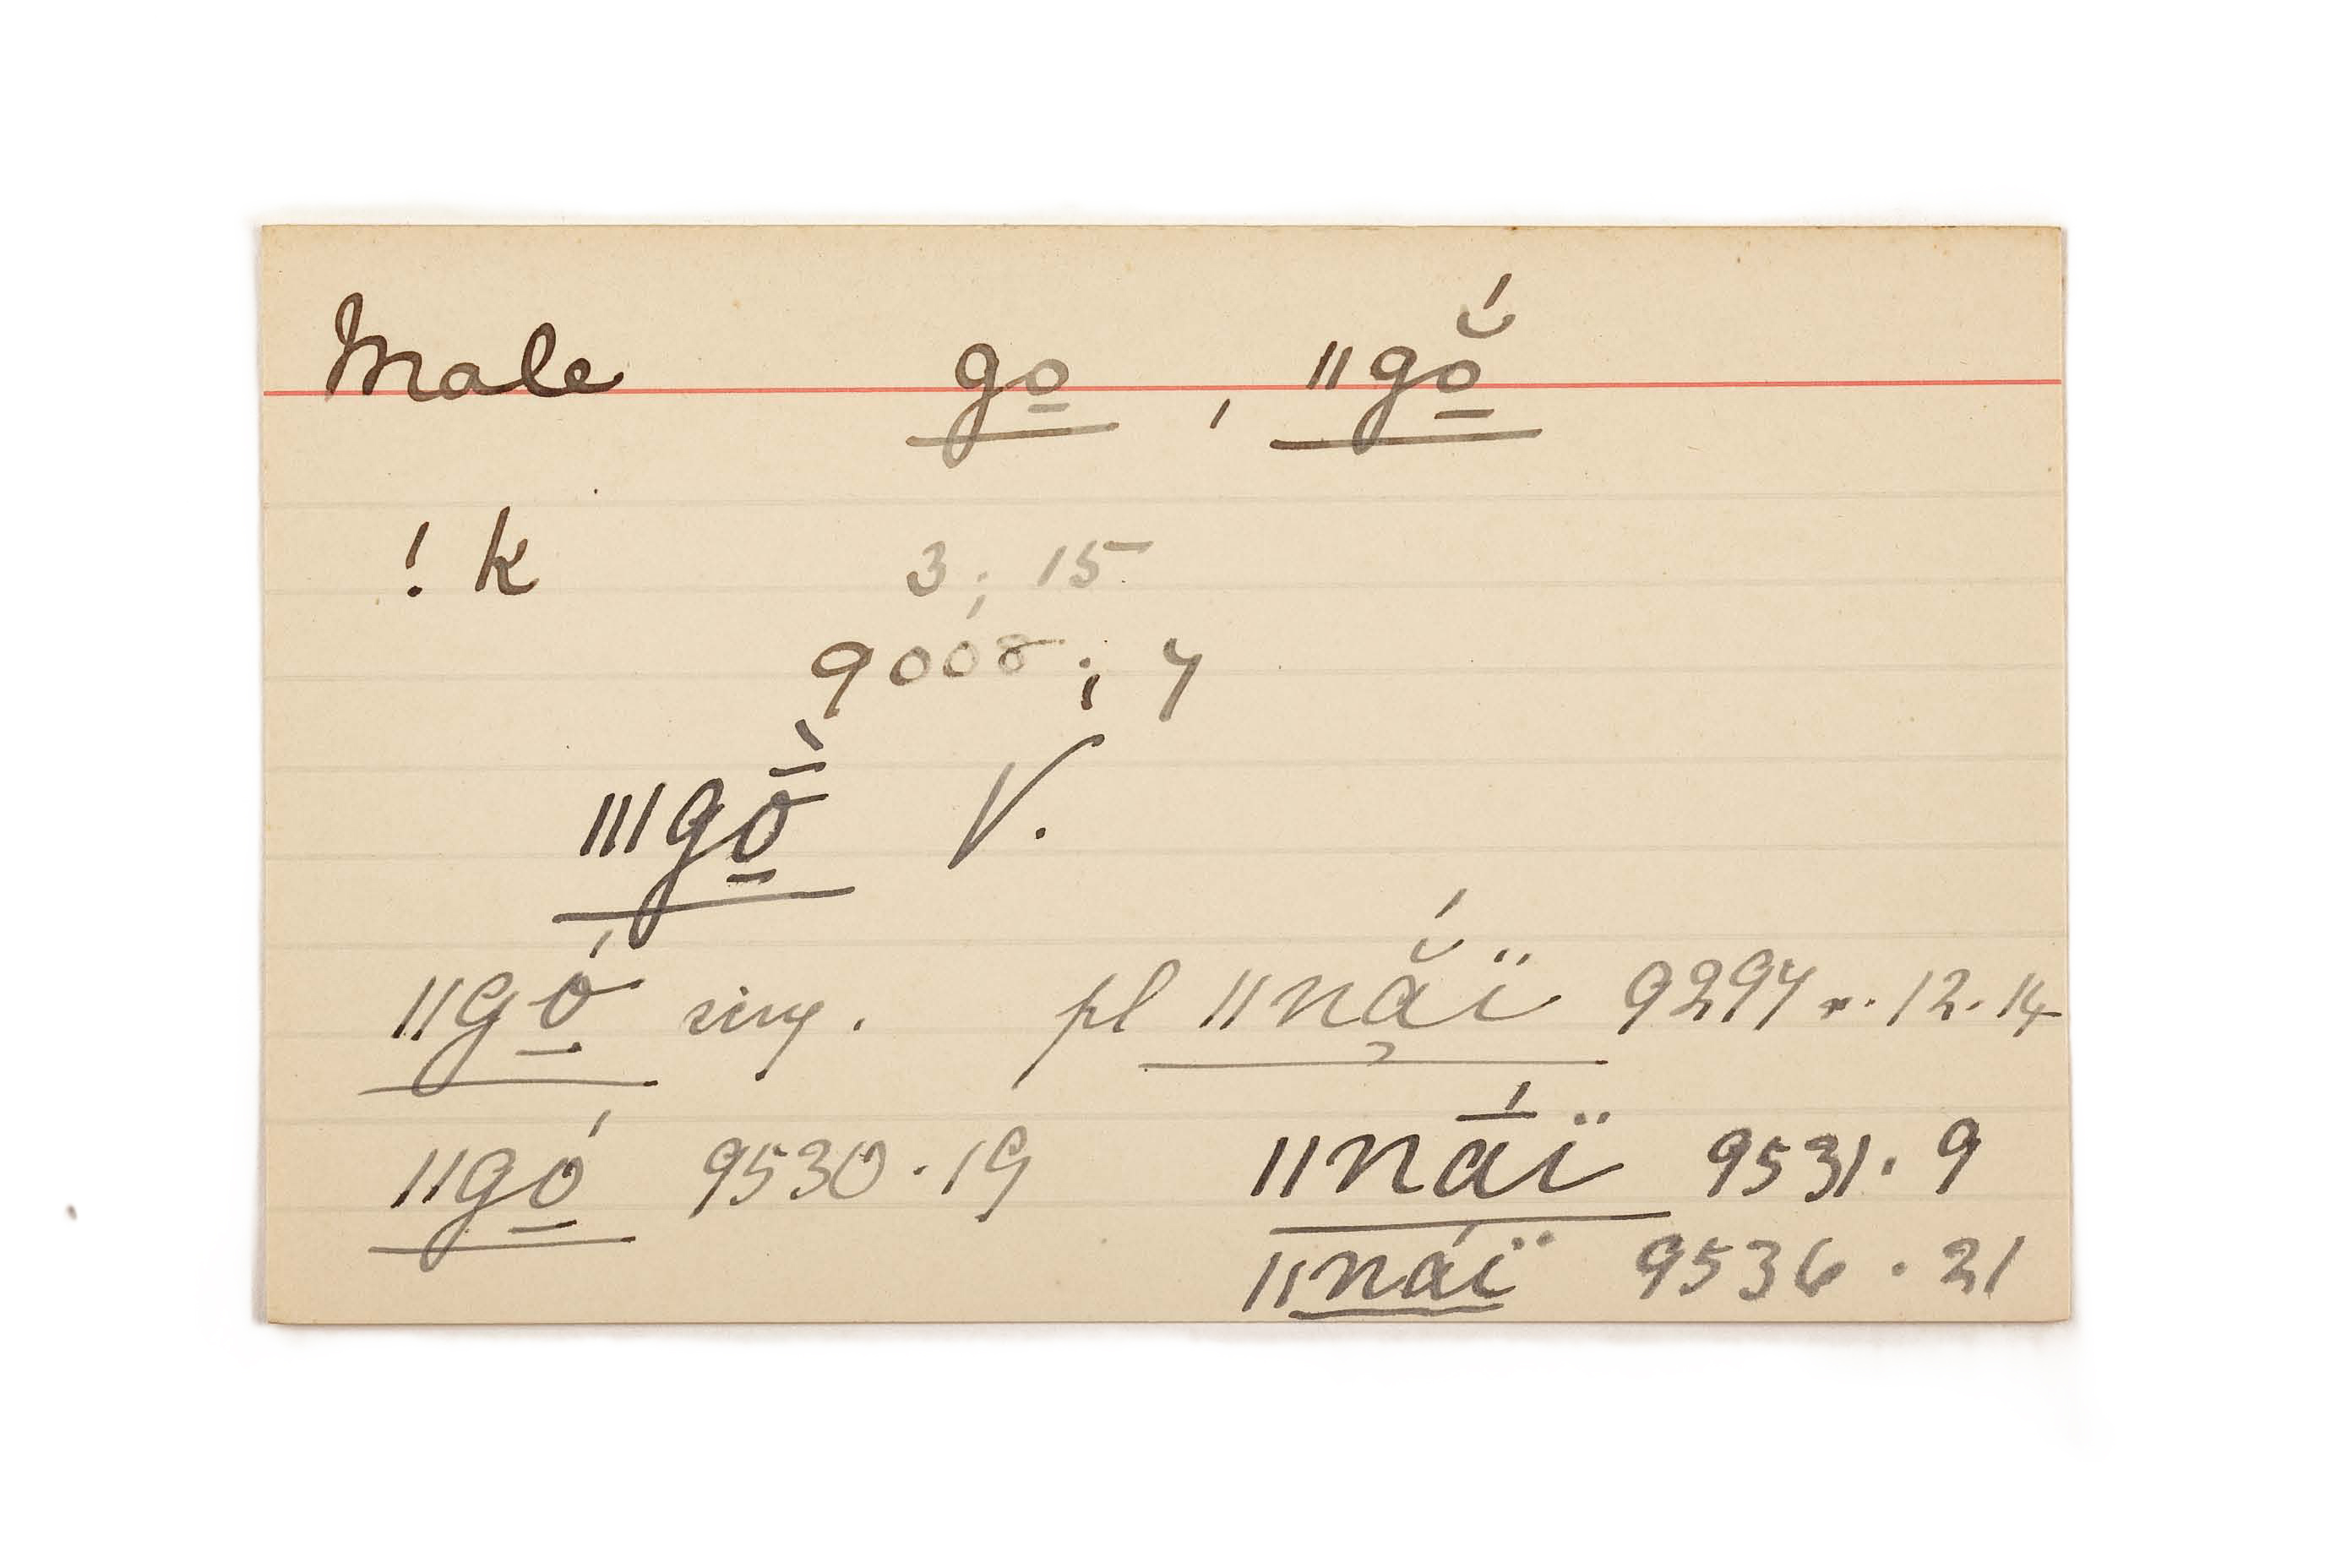 Male go̲ , ||gŏ̲́
! k 3; 15
9008; 7
|||gṑ̲ V.
||gó̲ sing. pl ||ną̆́ï 9294 r. 12. 14
||gó̲ 9530. 19 ||nā́ï 9531. 9
||náï 9536. 21